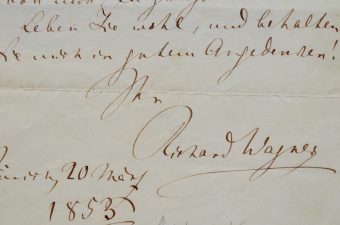 Leben Sie wohl, und behalten
Sie mich in gutem Angedenken!
Ihr
Richard Wagner
Zürich, 20 März
1853